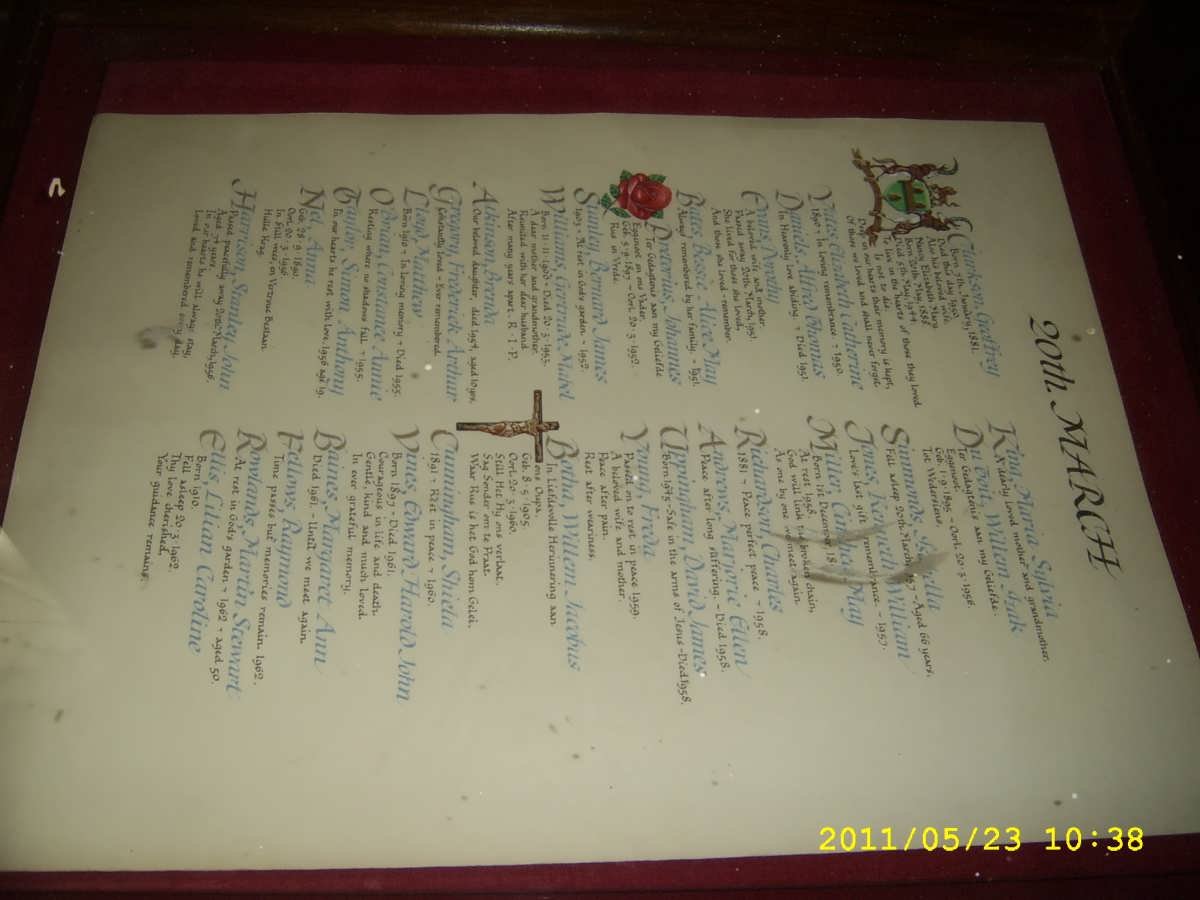 20th. MARCH
Clarkson, Geoffrey
Born 7th. January, 1881.
Died this day, 1950.
Also his beloved wife,
Nancy Elizabeth Mary
Born 20th. May, 1888.
Died 5th. May, 1944.
To live in the hearts of those they loved
Is not to die.
Deep in our hearts their memory is kept,
Of them we loved and shall never forget.
Yates, Elizabeth Catherine
1890 ~ In loving remembrance ~ 1950.
Daniels, Alfred Thomas
In Heavenly love abiding. ~ Died 1951.
Evans, Dorothy
A beloved wife and mother.
Passed away 20th. March, 1951.
She lived for those she loved,
And those she loved ~ remember.
Bates, Rose Alice May
Always remembered by her family. ~ 1951.
Pretorius, Johannes
Ter Gedagtenis aan my Geliefde
Eggenoot en ons Vader.
Geb. 5·9·1891 ~ Oorl. 20·3·1952.
Rus in Vrede.
Stanley, Bernard James
1903 ~ At rest in God's garden. ~ 1952.
Williams, Gerrick Mabel
Born 11·11·1900 ~ Died 20·3·1953.
Dear mother and grandmother.
Reunited with her dear husband
After many years apart. R·I·P.
Atkinson, Brenda
Our beloved daughter, died 1954, aged 10 yrs.
Gregory, Frederick Arthur
Gratefully loved ~ Ever remembered.
Lloyd, Matthew
Born 1910 ~ In loving memory ~ Died 1955.
O'Brian, Constance Annie
Resting where no shadows fall. ~ 1955.
Taylor, Simon Anthony
In our hearts he rest with love, 1956 age 19.
Nel, Anna
Geb. 28·9·1890.
Oorl. 20·3·1956.
In Stil weer, en Vertroue Bestaan
Hulle Krag.
Harrison, Stanley John
Passed peacefully away 20th March, 1956.
Aged 74 years.
In our hearts he will always stay,
Loved and remembered every day.
King, Maria Sylvia
A dearly loved mother and grandmother.
Du Toit, Willem-
Ter Gedagtenis aan my Geliefde
Eggenoot.
Geb. 1·9·1895 ~ Oorl. 20·3·1956.
Tot Wedersiens.
Simmonds,
Fell asleep 20th. March, ~ Aged 66 years.
Jones, Kenneth William
Love's last gift remembrance ~ 1957.
Miller, May
Born 1st. December, 18
At rest 1958
God will link the broken chain,
As one by one we meet again.
Richardson, Charles
1881 ~ Peace perfect peace ~ 1958.
Andrews, Marjorie Ellen
Peace after long suffering. ~ Died 1958.
Uppingham, David James
Born 1945 ~ Safe in the arms of Jesus ~ Died 1958.
Young, Freda
Passed on to rest in peace 1959.
A beloved wife and mother.
Peace after pain,
Rest after weariness.
Botha, Willem Jacobus
In Liefdevolle Herinnering aan
ons Oupa.
Geb. 8·5·1905.
Oorl. 20·3·1960.
Stil Het Hy ons verlaat,
Sag Sonder om te Praat.
Waar Rus is het God hom Gelei.
Cunningham, Shiela
1891 ~ Rest in peace ~ 1960.
Vines, Edward Harold John
Born 1897 ~ Died 1961.
Courageous in life and death.
Gentle, kind and much loved.
In ever grateful memory.
Baines, Margaret Ann
Died 1961. ~ Until we meet again.
Fellows, Raymond
Time passes but memories remain. 1962.
Rowlands, Martin Stewart
At rest in God's garden ~ 1962 ~ aged 50.
Ellis, Lilian Caroline
Born 1910.
Fell asleep 20·3·1962.
Thy love cherished,
Your guidance remains.
2011/05/23 10:38